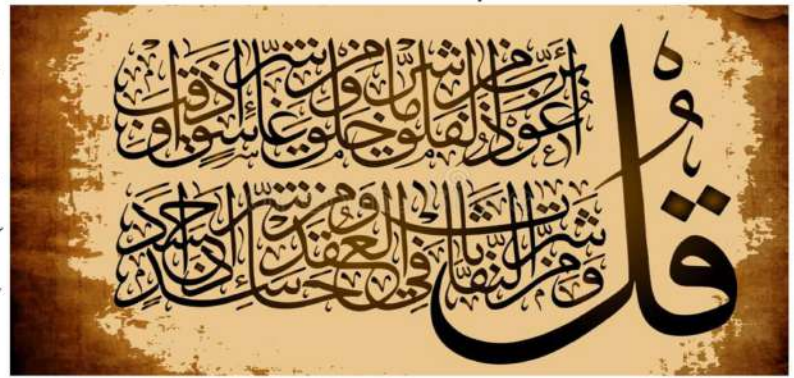 قُل
أَعُوذُ بِرَبِّ الْفَلَقِ مِن شَرِّ مَا خَلَقَ وَمِن شَرِّ غَاسِقٍ إِذَا وَقَبَ
وَمِن شَرِّ النَّفَّاثَاتِ فِي الْعُقَدِ وَمِن شَرِّ حَاسِدٍ إِذَا حَسَدَ